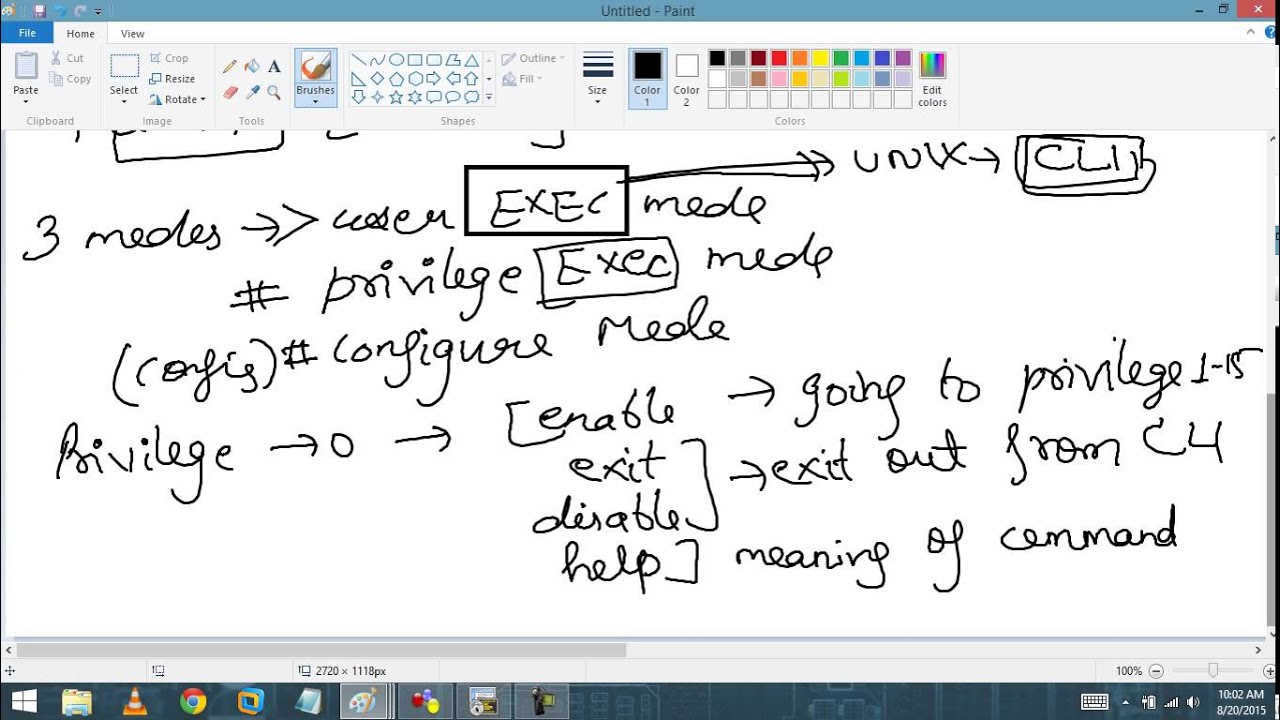 Untitled - Paint
File Home View
Paste Cut Copy Clipboard
Select Crop Resize Rotate Image
Tools
Brushes
Outline Fill Shapes
Size
Color 1 Color 2 Edit colors Colors
UNIX → CLI
3 modes →> user EXEC mode
# privilege Exec mode
(config)# configure Mode
Privilege → 0 → [enable → going to privilege 1-15
exit → exit out from CLI
disable
help] meaning of command
2720 × 1118px
100%
10:02 AM
8/20/2015